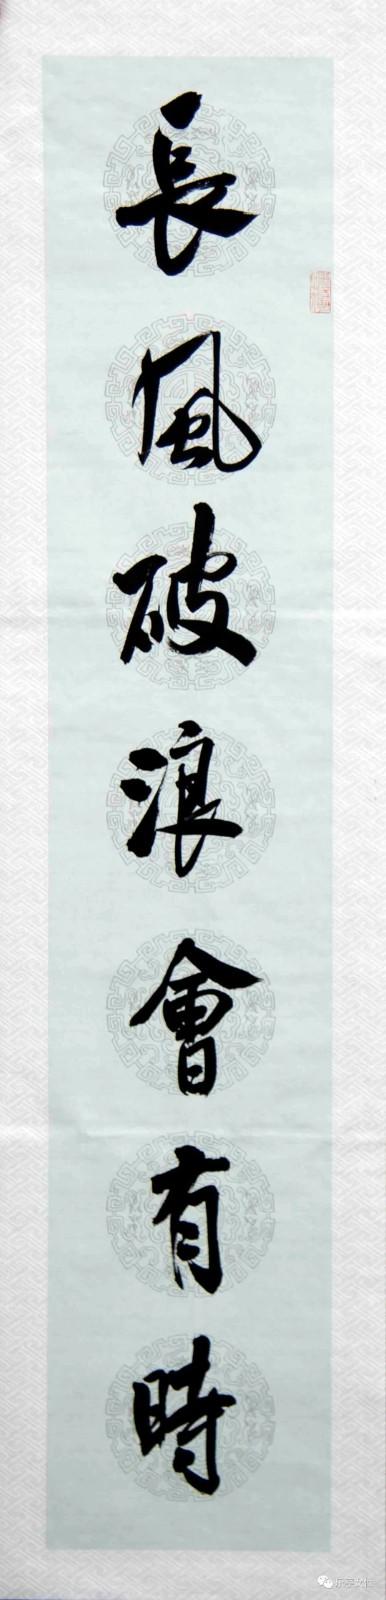 長風破浪會有時